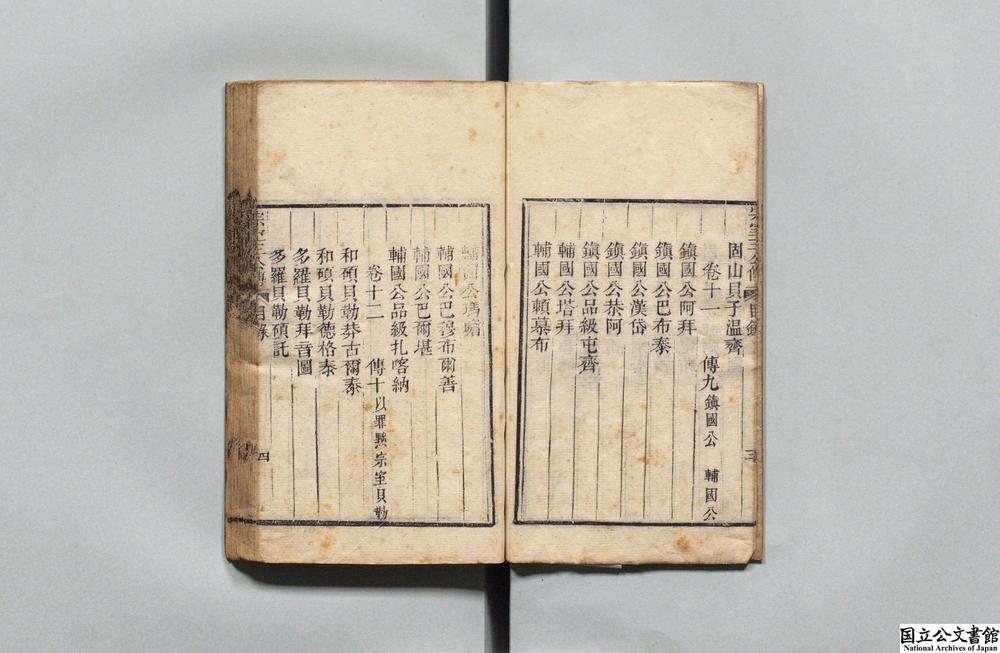 固山貝子温齊
卷十一 傳九 鎮國公 輔國公
鎮國公阿拜
鎮國公巴布泰
鎮國公漢岱
鎮國公恭阿
鎮國公品級屯齊
輔國公塔拜
輔國公賴慕布
三
輔國公瑪瞻
輔國公巴穆布爾善
輔國公巴爾堪
輔國公品級扎喀納
卷十二 傳十 以罪黜宗室貝勒
和碩貝勒莽古爾泰
和碩貝勒德格泰
多羅貝勒拜音圖
多羅貝勒碩託
目錄
四
国立公文書館
National Archives of Japan